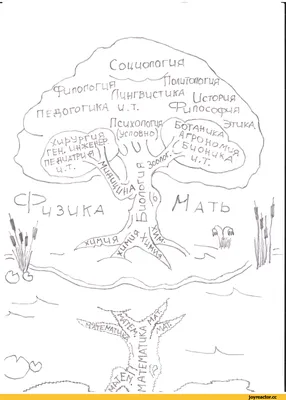 Социология
Филология
Политология
Лингвистика
История
Педогогика
и.т.
Философия
Психология
(условно)
Этика
Ботаника
Агрономия
Бионика
и.т.
Хирургия
Ген. инженер
Педиатрия
и.т.
Зоолог.
Медицина
Биология
Физика
Мать
химия
химия
химия
хим
матем
мат.
математика
мат.
математика
матем
joyreactor.cc